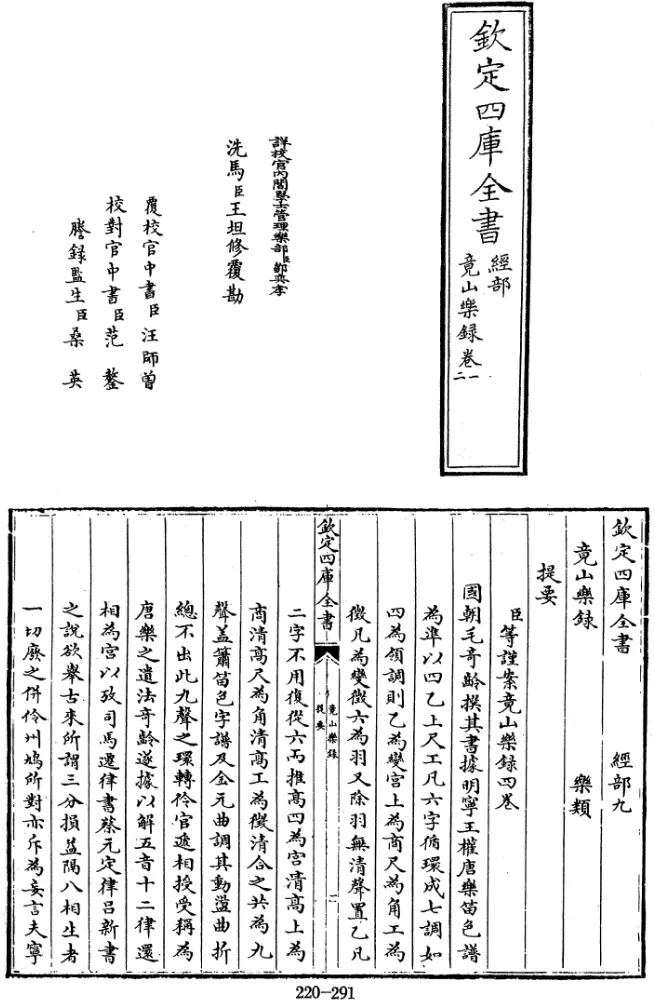 欽定四庫全書
經部
竟山樂録卷一
二
詳校官内閣學士管理樂部臣鄒奕孝
洗馬臣王坦修覆勘
覆校官中書臣汪師曾
校對官中書臣范鏊
謄録監生臣桑英
欽定四庫全書　經部九
竟山樂録　樂類
提要
臣等謹案竟山樂録四卷
國朝毛奇齡撰其書據明寧王權唐樂笛色譜
為準以四乙上尺工凡六字循環成七調如
四為領調則乙為變宫上為商尺為角工為
徵凡為變徵六為羽又除羽無清聲置乙凡
欽定四庫全書
竟山樂録
提要
一
二字不用復從六而推高四為宫清高上為
商清高尺為角清高工為徵清合之共為九
聲蓋簫笛色字譜及金元曲調其動盪曲折
總不出此九聲之環轉伶官遞相授受稱為
唐樂之遺法奇齡遂據以解五音十二律還
相為宫以攷司馬遷律書蔡元定律吕新書
之說欲舉古来所謂三分損益隔八相生者
一切廢之併伶州鳩所對亦斥為妄言夫寧
220-291